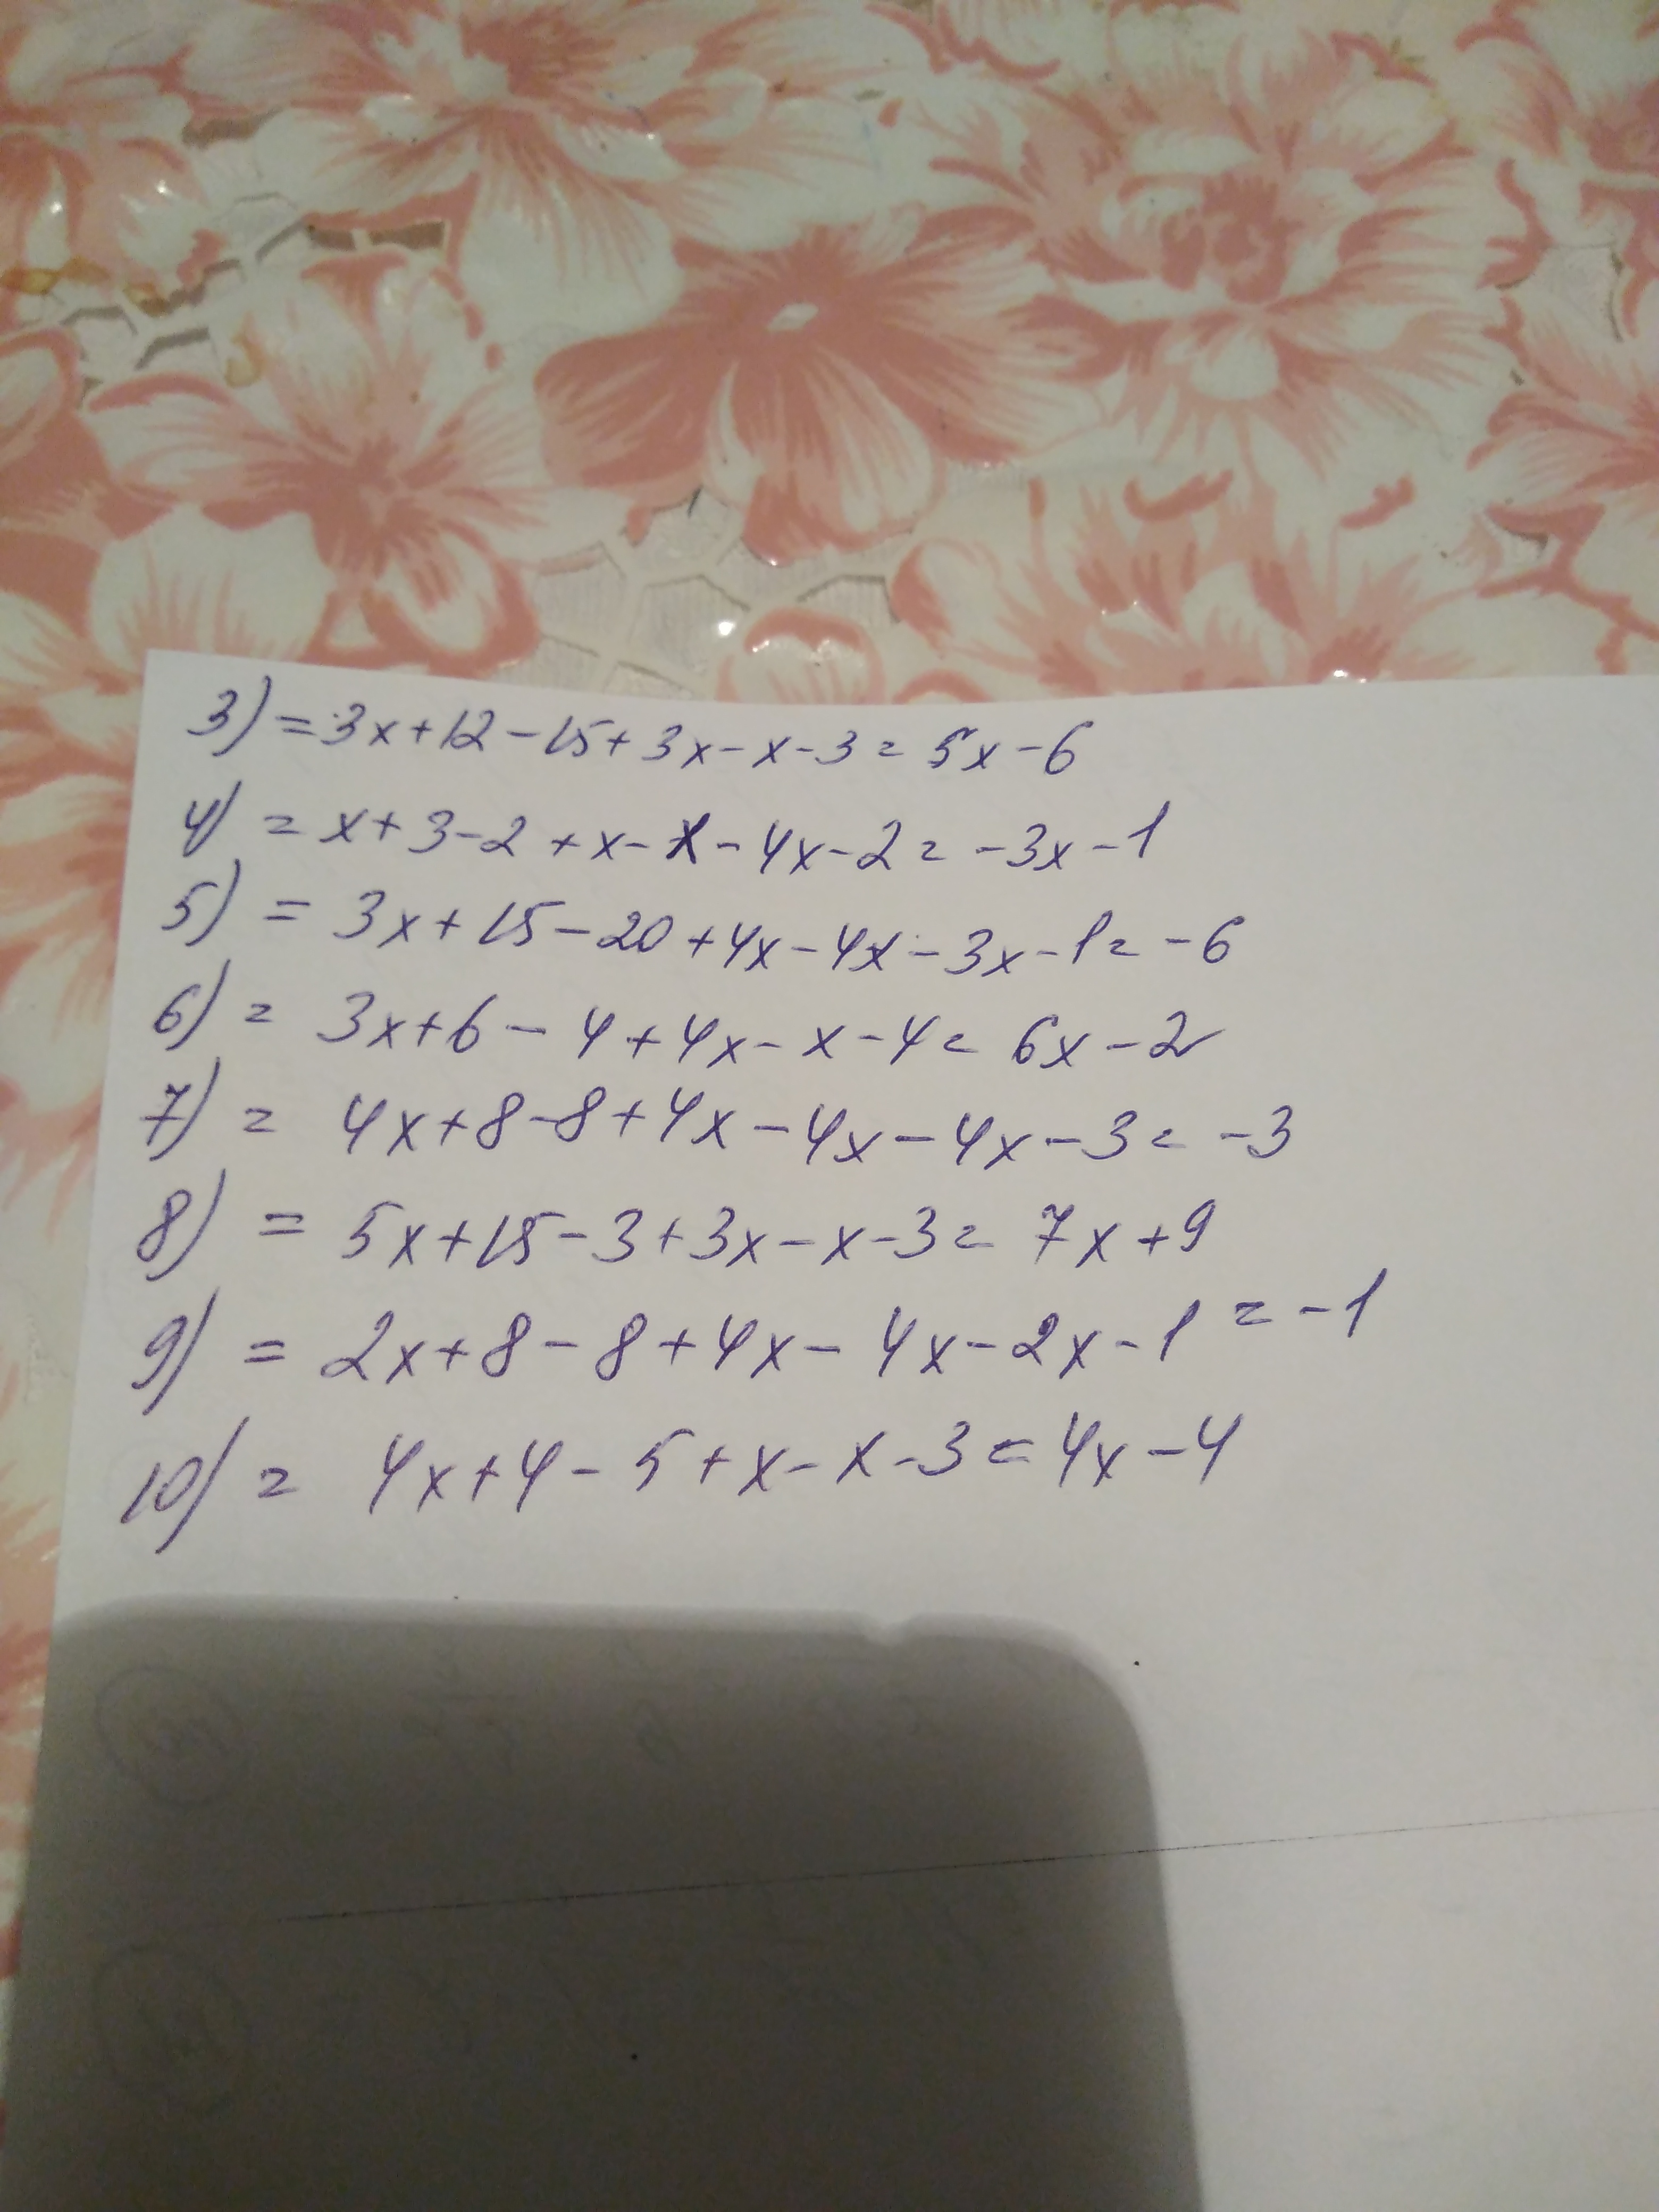 3) = 3x+12-15+3x-x-3 = 5x-6
4) = x+3-2+x-x-4x-2 = -3x-1
5) = 3x+15-20+4x-4x-3x-1 = -6
6) = 3x+6-4+4x-x-4 = 6x-2
7) = 4x+8-8+4x-4x-4x-3 = -3
8) = 5x+15-3+3x-x-3 = 7x+9
9) = 2x+8-8+4x-4x-2x-1 = -1
10) = 4x+4-5+x-x-3 = 4x-4